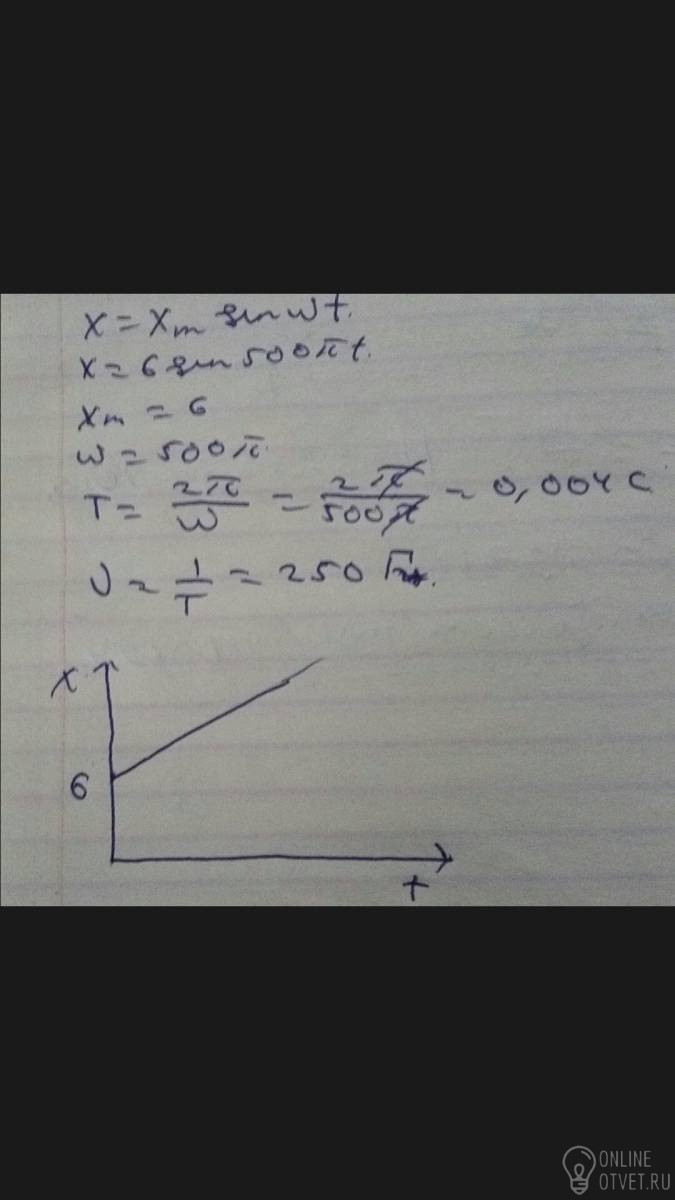 x = xₘ sin ωt.
x = 6 sin 500πt.
xₘ = 6
ω = 500π
T = 2π/ω = 2π/500π = 0,004 с
ν = 1/T = 250 Гц.
x
6
t
ONLINE
OTVET.RU